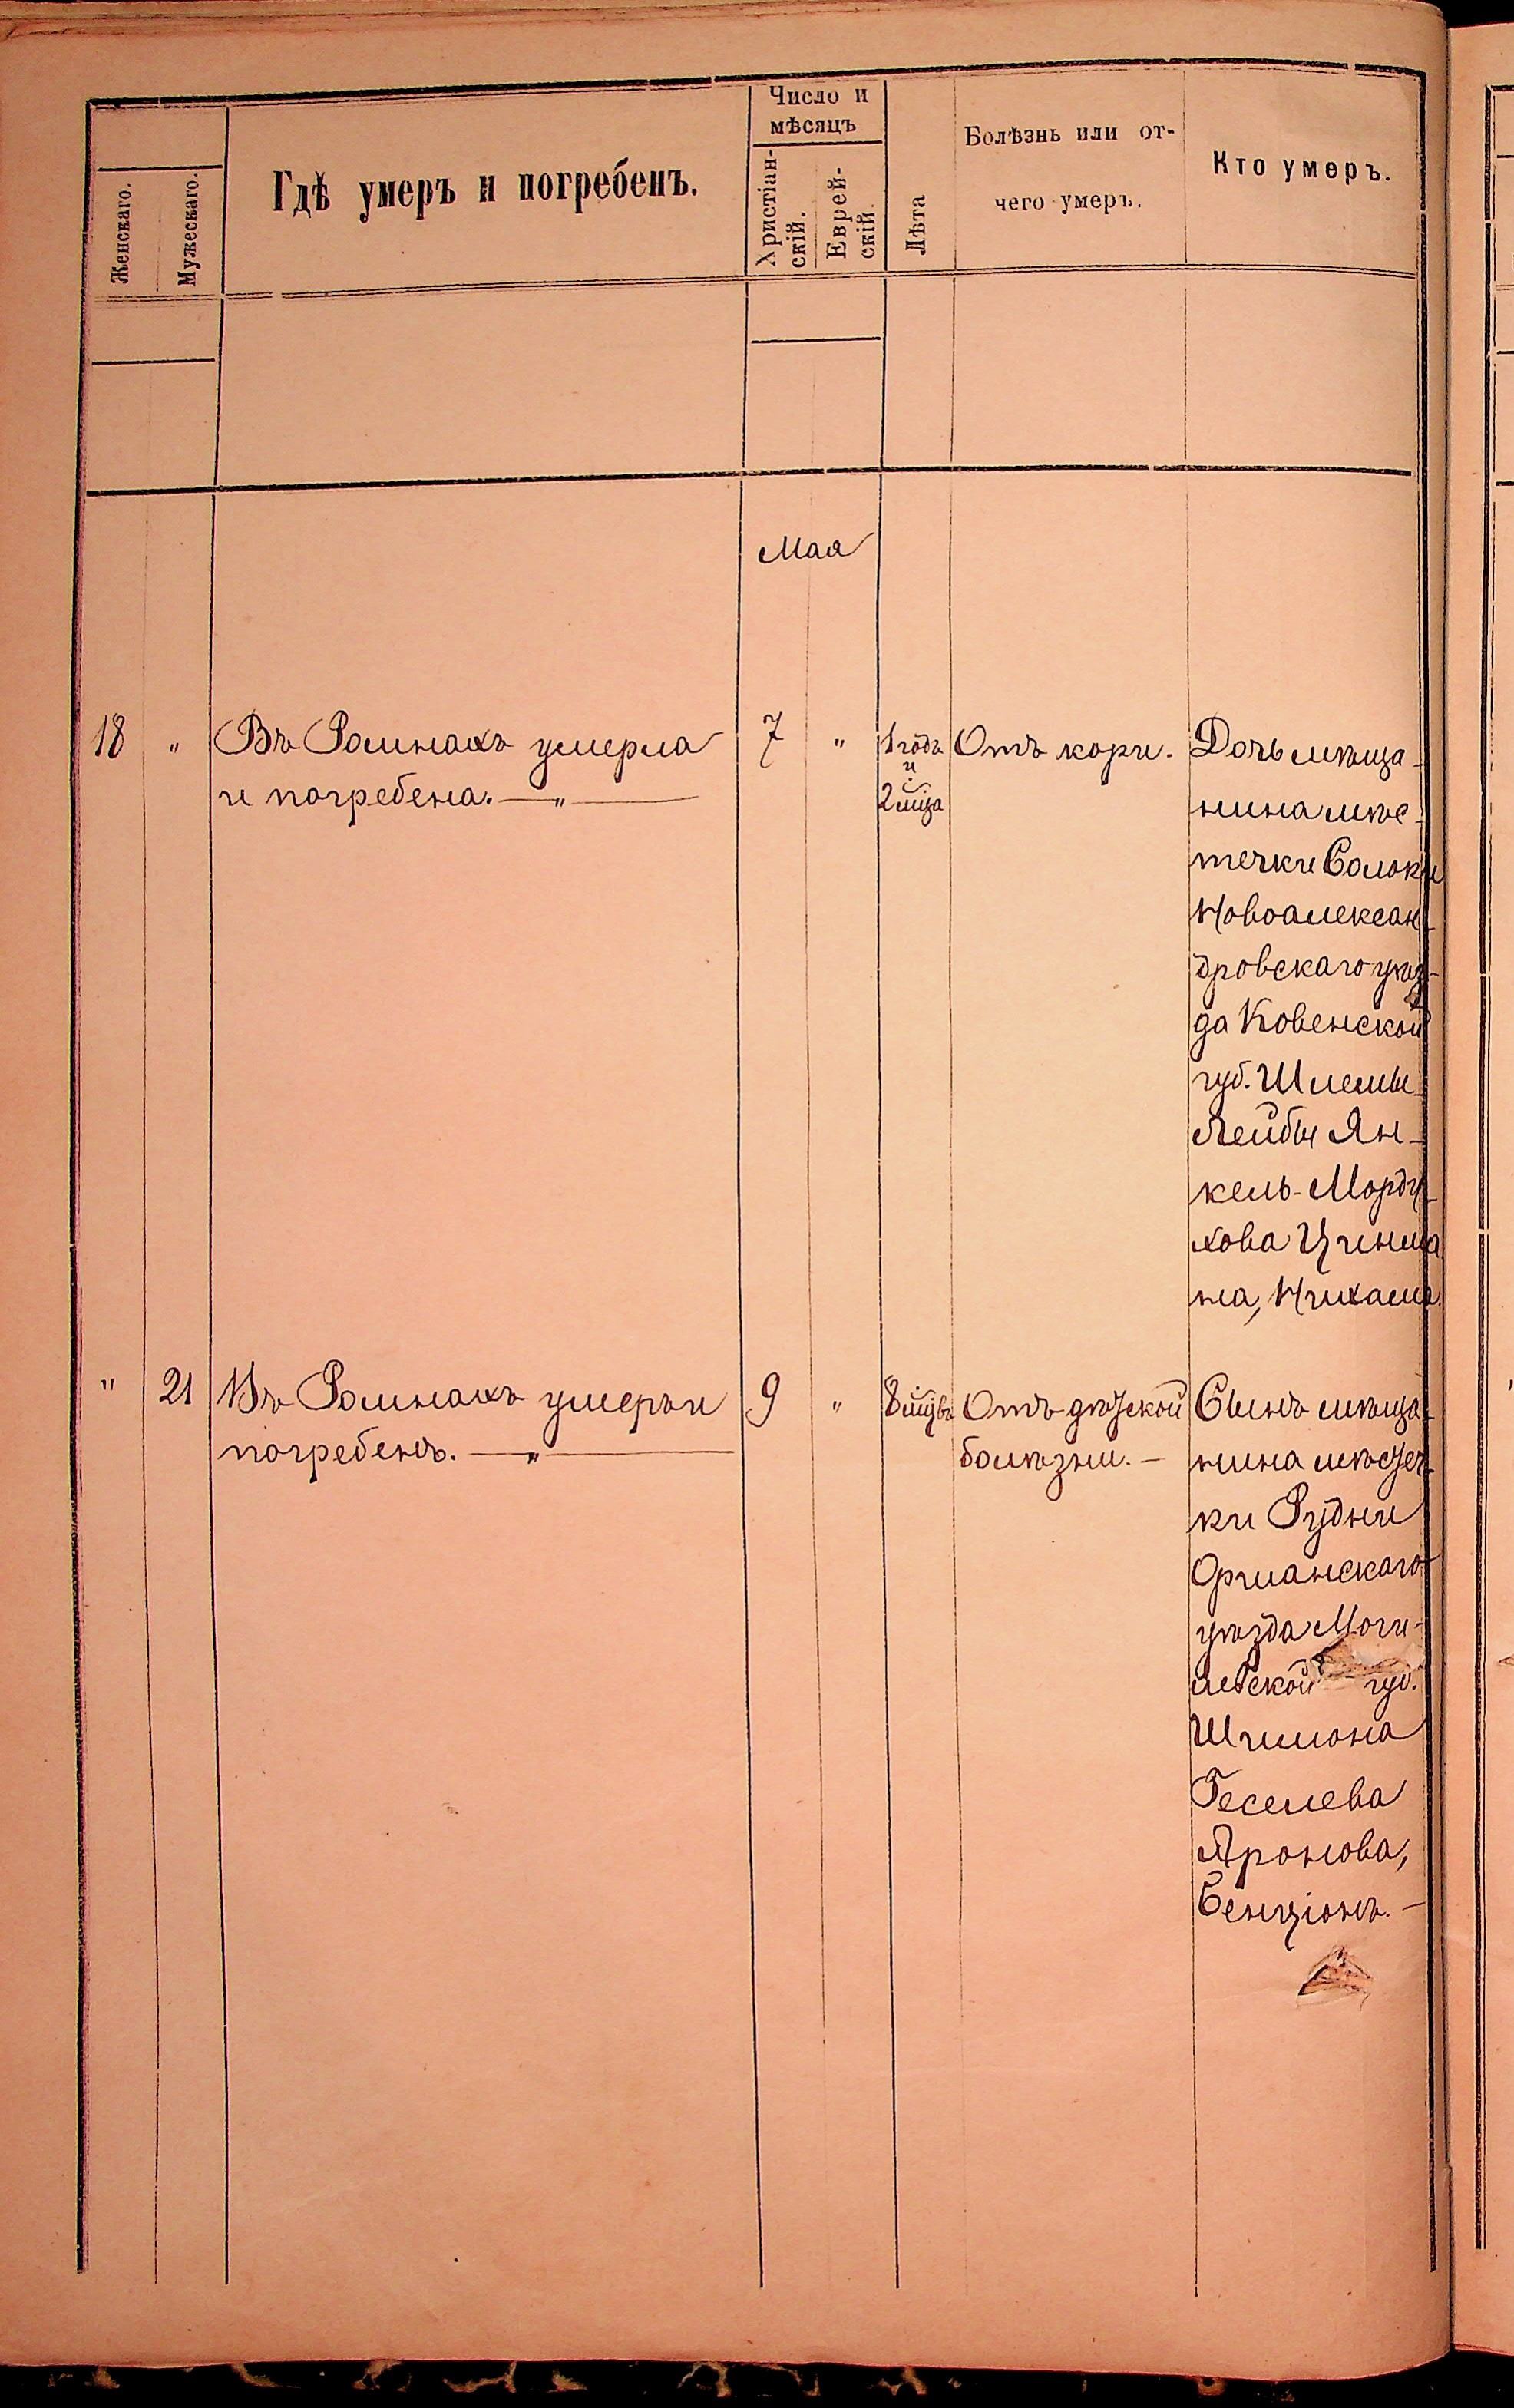 Женскаго.
Мужескаго.
Гдѣ умеръ и погребенъ.
Число и
мѣсяцъ
Христіан-
скій.
Еврей-
скій.
Лѣта
Болѣзнь или от-
чего умеръ.
Кто умеръ.
Мая
18 " Въ Ромнахъ умерла
и погребена. — " —
7 "
1 годъ
и
2 мца
Отъ кори.
Дочь мѣща-
нина мѣс-
течки Солоки
Новоалексан-
дровскаго уѣз-
да Ковенской
губ. Шлемы-
Лейбы Ян-
кель-Морду-
хова Цинма
на, Нихама.
" 21 Въ Ромнахъ умеръ и
погребенъ. — " —
9 "
8 мцвъ
Отъ дѣтской
болѣзни. —
Сынъ мѣща-
нина мѣстеч-
ки Рудни
Оршанскаго
уѣзда Моги-
левской губ.
Шимона
Геселева
Аронова,
Бенціонъ. —